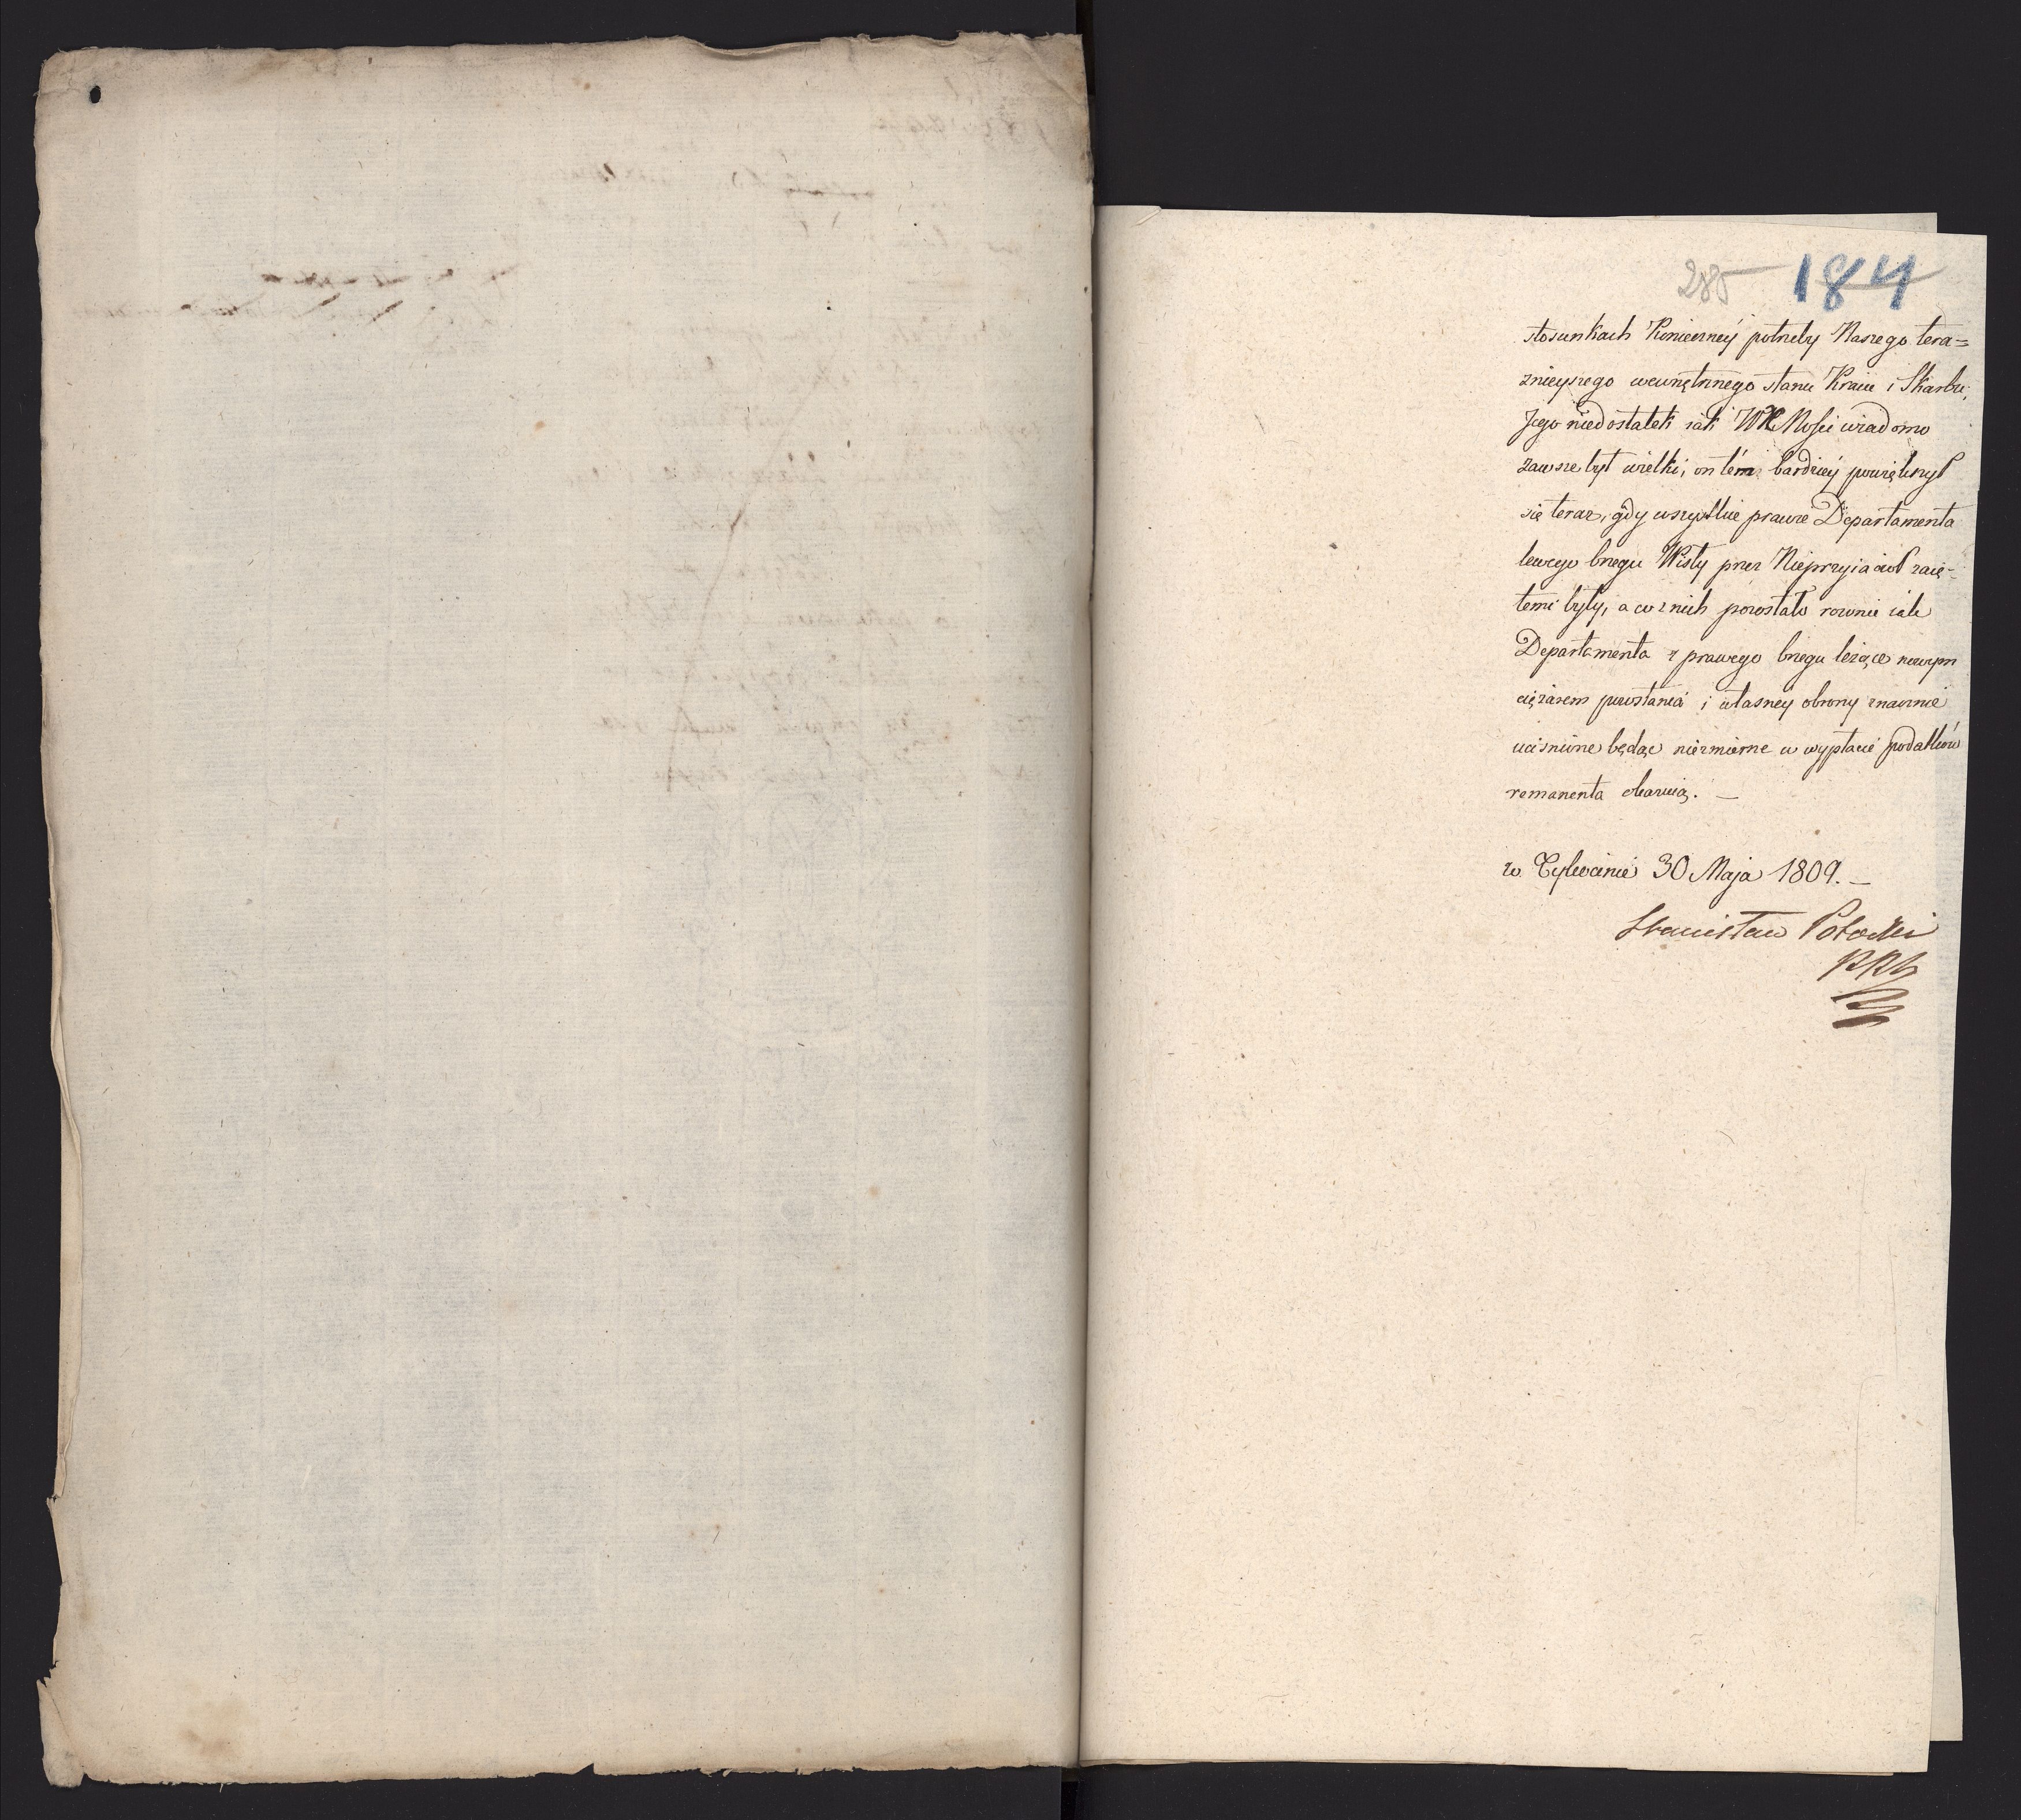 285 184
stosunkach koniecznéy potrzeby Naszego tera=
znieyszego wewnętrznego stanu Kraiu i Skarbu,
Jego niedostatek iak WKMości wiadomo
zawsze był wielki, on tém bardziey powiększył
się teraz, gdy wszystkie prawie Departamenta
lewego brzegu Wisły przez Nieprzyiaciół zaię-
temi były, a co z nich pozostało rownie iak
Departamenta z prawego brzegu leżące nowym
ciężarem powstania i własney obrony znacznie
uciśnione będąc niezmierne w wypłacie podatków
remanenta okazuią. —
w Tykocinie 30 Maja 1809. —
Stanisław Potocki